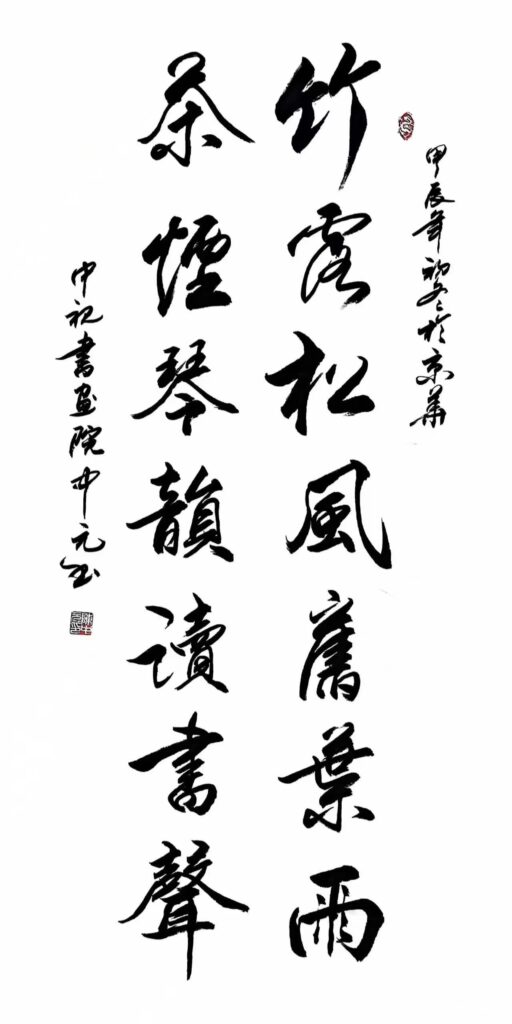 甲辰年初冬於京華
竹露松風蕉葉雨
茶煙琴韻讀書聲
中视書画院中元书